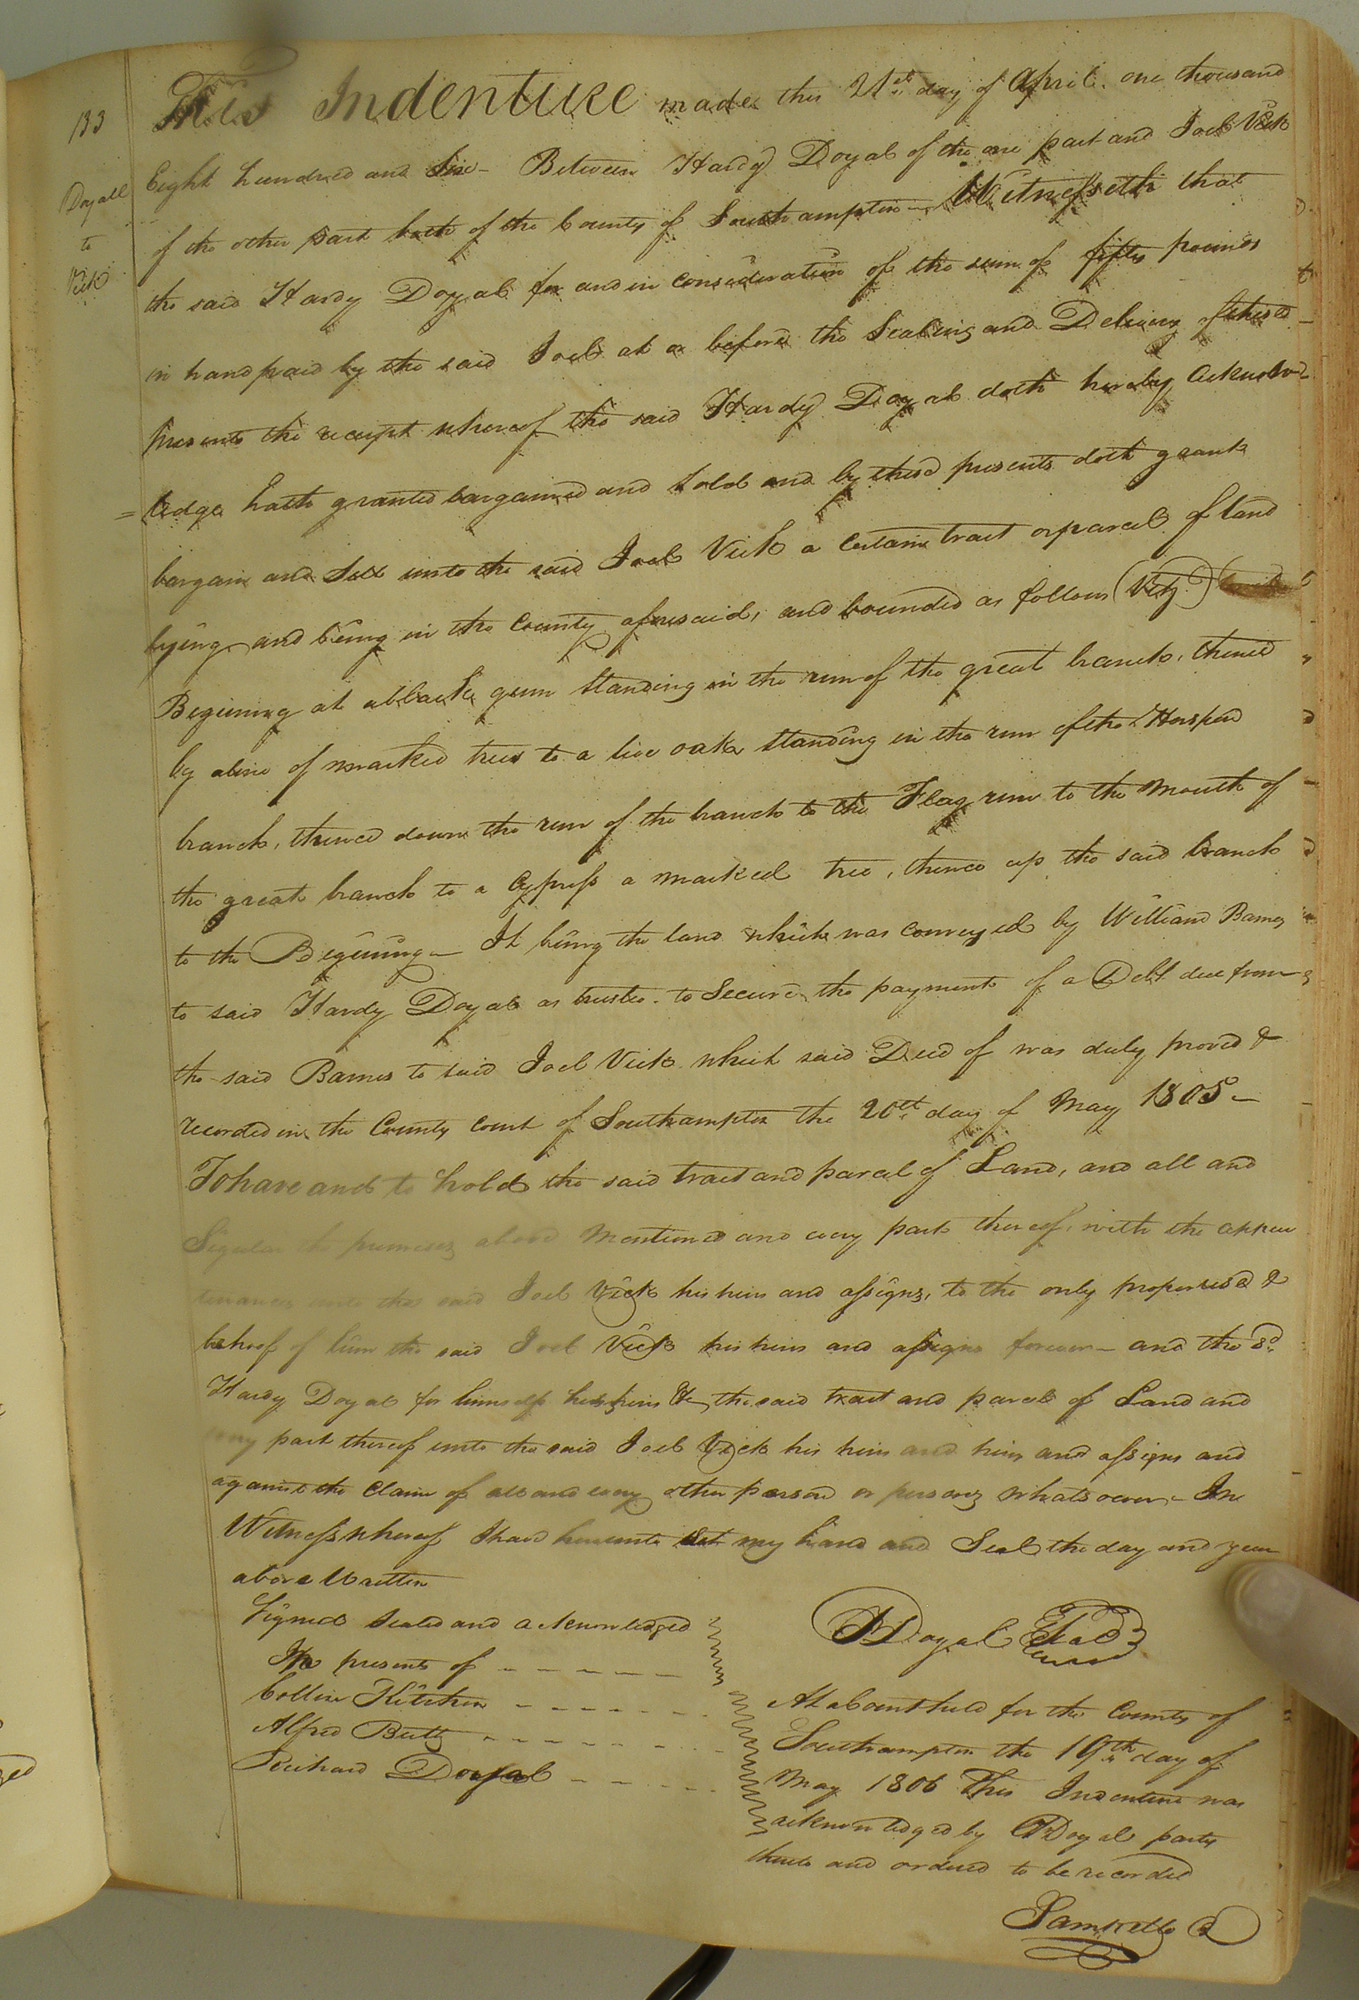 133
Doyall
to
Vick
This Indenture made this 21st day of April one thousand
Eight hundred and Six - Between Hardy Doyal of the one part and Joel Vick
of the other part both of the County of Southampton - Witnesseth that
the said Hardy Doyal for and in consideration of the sum of fifty pounds
in hand paid by the said Joel at or before the Sealing and Delivery of these
presents the receipt whereof the said Hardy Doyal doth hereby Acknow-
=ledge hath granted bargained and Sold and by these presents doth grant
bargain and Sell unto the said Joel Vick a certain tract or parcel of land
lying and being in the County aforesaid, and bounded as follows (Viz.)
Begining at a black gum standing in the run of the great branch, thence
by a line of marked trees to a live oak standing in the run of the Horspen
branch, thence down the run of the branch to the Flag run to the Mouth of
the great branch to a Cypress a marked tree, thence up the said branch
to the Begining - It being the land which was conveyed by William Barnes
to said Hardy Doyal as trustee to Secure the payment of a Debt due from
the said Barnes to said Joel Vick which said Deed of was duly proved &
recorded in the County court of Southampton the 20th day of May 1805 -
To have and to hold the said tract and parcel of Land, and all and
Singular the premises above Mentioned and every part thereof, with the appur
tenances unto the said Joel Vick his heirs and assigns, to the only proper use &
behoof of him the said Joel Vick his heirs and assigns forever - and the sd.
Hardy Doyal for himself his heirs &c, the said tract and parcel of Land and
every part thereof unto the said Joel Vick his heirs and heirs and assigns and
against the claim of all and every other person or persons whatsoever - In
Witness whereof I have hereunto Set my hand and Seal the day and year
above Written
Signed Sealed and acknowledged
In presents of - - - - - -
Collin Kitchen - - - - - -
Alfred Butts - - - - - - -
Richard Doyal - - - - -
H Doyal Seal
At a Court held for the County of
Southampton the 19th day of
May 1806 This Indenture was
acknowledged by H Doyal party
thereto and ordered to be recorded
Saml Kello